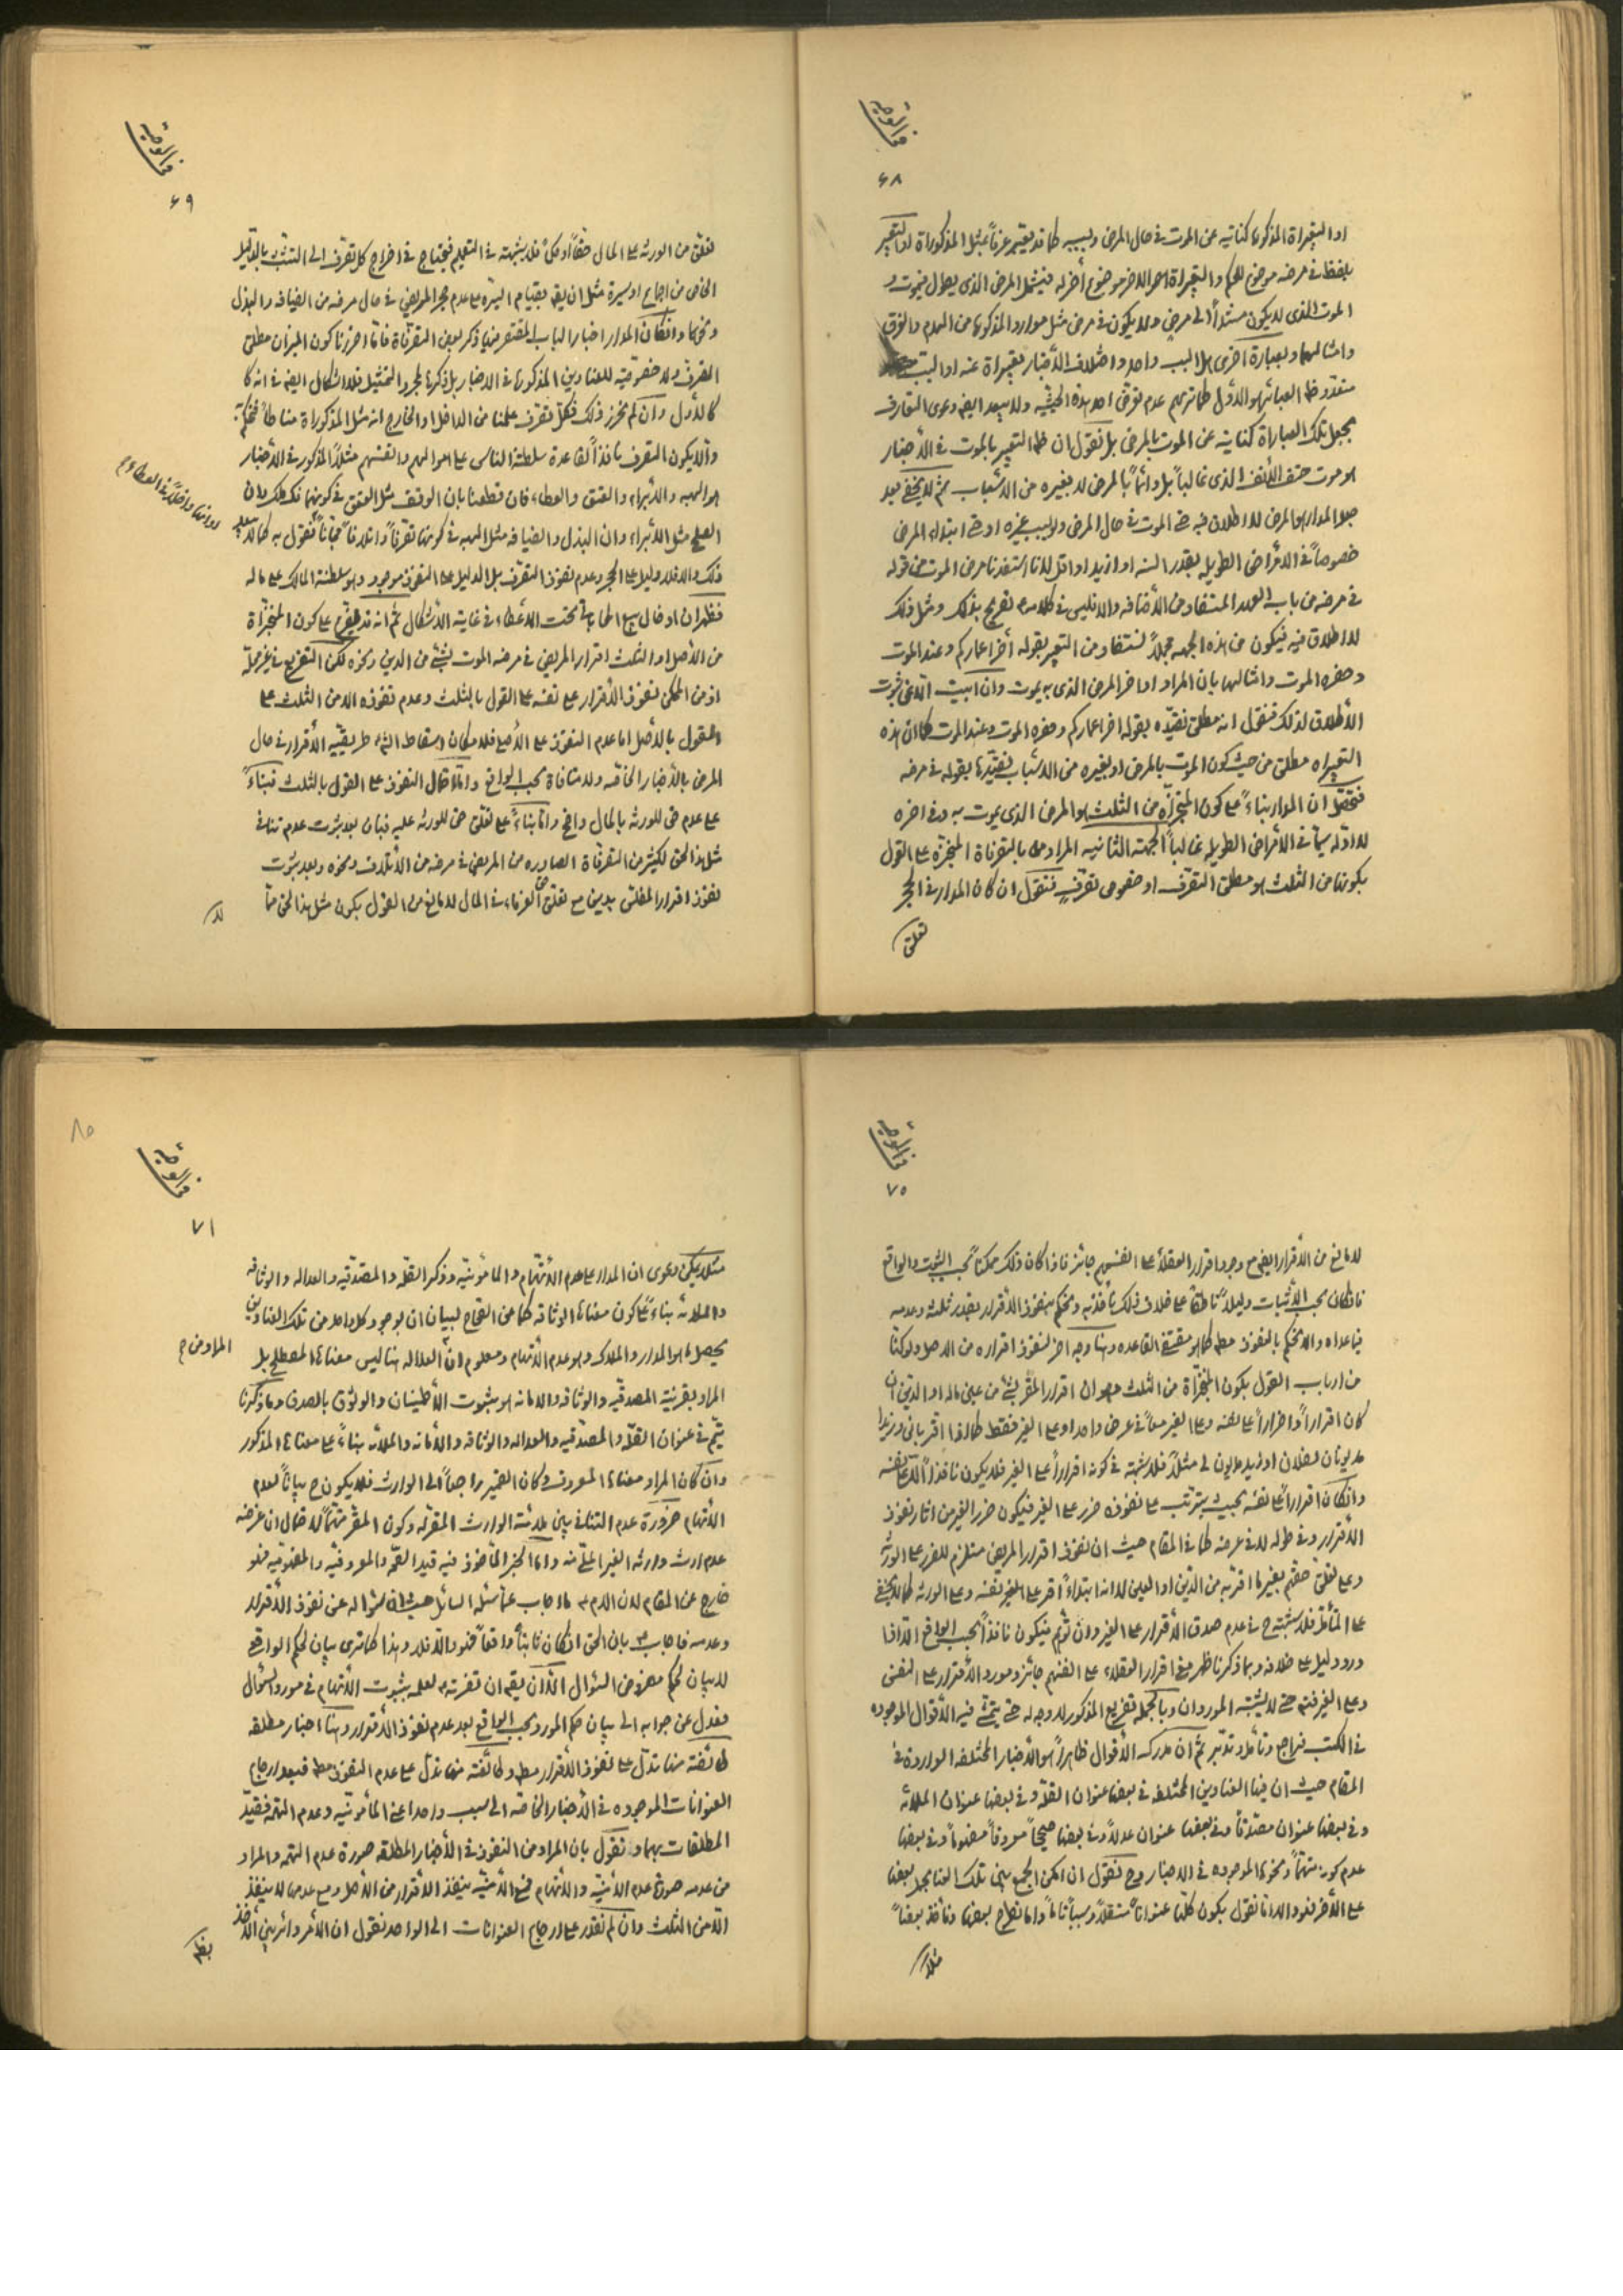 ۶۸
او التعبيراة المذكورة كناية عن الموت في حال المرض وبسببه كما قد يعبر عرفاً بمثل المذكوراة او التعبير
بلفظ في مرضه موضوع للحكم والتعبيراة الاخر موضوع آخر له فيشمل المرض الذى يطول فيموت و
الموت الذى لا يكون مستنداً الى مرض ولا يكون في مرض مثل موارد المذكورة من الهدم والغرق
وامثالهما وبعبارة اخرى هل السبب واحد واختلاف الأخبار تعبيراة عنه او السبب
متعدد ظ العبائر هو الاول كما ترى عدم توقى احد بهذه الحيثية ولا يبعد ايضا دعوى التعارف
بجعل تلك العباراة كناية عن الموت بالمرض بل نقول ان ظ التعبير بالموت في الأخبار
هو موت حتف الأنف الذى غالباً بل دائماً بالمرض لا بغيره من الاسباب ثم لا يخفى بعد
جعل المدار هو المرض لا اطلاق فيه حتى الموت في حال المرض ولو بسبب غيره او حتى ابتداء المرض
خصوصاً في الامراض الطويلة بقدر السنة او ازيد او اقل لانا استفدنا مرض الموت من قوله
في مرضه من باب العهد المستفاد من الأضافة والا فليس في كلامه تصريح بذلك ومثل ذلك
لا اطلاق فيه فيكون من هذه الجهة مجملاً نستفاد من التعبير بقوله آخر اعماركم وعند الموت
وحضره الموت وامثالها بان المراد اواخر المرض الذى به يموت وان ابيت الا عن ثبوت
الأطلاق لذلك فنقول انه مطلق نقيده بقوله آخر اعماركم وحضره الموت وعند الموت كما ان هذه
التعبيراة مطلق من حيث كون الموت بالمرض او بغيره من الاسباب نقيدها بقوله في مرضه
فتحصل ان المدار بناءً على كون المنجزاة من الثلث هو المرض الذى يموت به وفي آخره
لا اوله سيما في الأمراض الطويلة غالباً الجهة الثانية المراد بالتصرفاة المنجزة على القول
بكونها من الثلث هو مطلق التصرف او خصوص تصرف فنقول ان كان المدار في الحجر
تعلق
۶۹
تعلق من الورثة على المال حقاً او ملكً فلا شبهة في التعميم فيحتاج في اخراج كل تصرف الى التشبث بالدليل
الخاص من اجماع او سيرة مثل ان يقه بقيام السيرة على عدم حجر المريض في حال مرضه من الضيافة والبذل
ونحوهما وان كان المدار اخبار الباب المقتصر فيها ذكر بعض التصرفاة فاما احرزنا كون الميزان مطلق
التصرف ولا خصوصية للعناوين المذكورة في الاخبار بل ذكرها لمجرد التمثيل فلا اشكال ايضا في انه كا
كالأول وان لم نحرز ذلك فكل تصرف علمنا من الداخل او الخارج انه مثل المذكوراة مناطاً فنحكم به
والا يكون التصرف نافذاً لقاعدة سلطنة الناس على اموالهم وانفسهم مثلاً المذكور في الأخبار
هو الهبة والأبراء والعتق والعطاء فان قطعنا بان الوقف مثل العتق في كونهما فك ملك وان
الصلح مثل الأبراء وان البذل والضيافة مثل الهبة في كونها تصرفاً واتلافاً مجاناً فنقول به
ذلك والا فلا دليل على الحجر وعدم نفوذ التصرف بل الدليل على النفوذ موجود وهو سلطنة المالك على ماله
فظهر ان ادخال بيع المحاباتى تحت الأعطاء في غاية الأشكال ثم انه قد يفرع على كون المنجزاة
من الأصل او الثلث اقرار المريض في مرضه الموت بشئ من الدين ونحوه لكن التفريع في غير محله
اذ من الممكن نفوذ الأقرار على نفسه على القول بالثلث وعدم نفوذه الا من الثلث على
القول بالأصل اما عدم النفوذ على الأصل فلامكان اسقاط الشارع طريقية الأقرار في حال
المرض بالأخبار الخاصة ولا منافاة بحسب الواقع واما احتمال النفوذ على القول بالثلث فبناءً
على عدم حق للورثة بالمال واضح واما بناءً على تعلق حق للورثة عليه فبان بعد ثبوت عدم تنافي
مثل هذا الحق لكثير من التصرفاة الصادرة من المريض في مرضه من الأتلاف ونحوه وبعد ثبوت
نفوذ اقرار المفلس بدين مع تعلق حق الغرماء في المال لا مانع من القول بكون مثل هذا الحق مما
لا
۷۰
لا مانع من الأقرار ايضا مع وجود اقرار العقلاء على انفسهم جائز فاذا كان ذلك ممكناً بحسب الثبوت والواقع
فان كان بحسب الأثبات دليلاً ناطقاً على خلاف ذلك نأخذ به ونحكم بنفوذ الأقرار بقدر ثلثه وعدمه
فيما عداه والا نحكم بالنفوذ مطه كما هو مقتضى القاعدة وهنا وجه آخر لنفوذ اقراره من الاصل ولو كنا
من ارباب القول بكون المنجزاة من الثلث وهو ان اقرار المقر بشئ من عين ماله او الدين ان
كان اقراراً واضراراً على نفسه وعلى الغير معاً في عرض واحد او على الغير فقط كما اذا اقر بانى وزيداً
مديونان لفلان او زيد مديون لى مثلاً فلا شبهة في كونه اقراراً على الغير فلا يكون نافذاً الا على نفسه
وان كان اقراراً على نفسه بحيث يترتب على نفوذه ضرر على الغير فيكون ضرر الغير من آثار نفوذ
الأقرار وفي طوله لا في عرضه كما في المقام حيث ان نفوذ اقرار المريض مستلزم للضرر على الورثة
وعلى تعلق حقهم بغير ما اقر به من الدين او العين لا انه ابتداءً اقر على الغير نفسه وعلى الورثة كما لا يخفى
على المتأمل فلا شبهة ح في عدم صدق الأقرار على الغير وان توهم فيكون نافذاً بحسب الواقع الا اذا
ورد دليل على خلافه وبما ذكرنا ظهر معنى اقرار العقلاء على انفسهم جائز ومورد الأقرار على النفس
وعلى الغير فتنبه حتى لا يشتبه الموردان وبالجملة تفريع المذكور لا وجه له حتى يتمشى فيه الأقوال الموجوده
في الكتب فراجع وتأمل وتدبر ثم ان مدرك الأقوال ظاهراً هو الأخبار المختلفة الواردة في
المقام حيث ان فيها العناوين المختلفة في بعضها عنوان الثقة وفي بعضها عنوان الملائة
وفي بعضها عنوان مصدقاً وفي بعضها عنوان عدلاً وفي بعضها صحيحاً معروفاً مصوناً وفي بعضها
عدم كونه متهماً ونحو ها الموجوده في الاخبار وح فنقول ان امكن الجمع بين تلك العنا بحمل بعضها
على الأخر فهو والا فاما نقول بكون كلها عنواناً مستقلاً وسبباً تاماً واما نطرح بعضها ونأخذ بعضاً
مثلا
۷۱
مثلا يمكن دعوى ان المدار على عدم الأتهام والمأمونية وذكر الثقة والمصدقية والعدالة والوثاقة
والملائة بناءً على كون معناها الوثاقة كما عن الصحاح لبيان ان بوجود كل واحد من تلك العناوين
يحصل ما هو المدار والملاك وهو عدم الأتهام ومعلوم ان العدالة هنا ليس معناها المصطلح بل
المراد بقرينة المصدقية والوثاقة والامانة هو بثبوت الأطمينان والوثوق بالصدق وما ذكرنا
يتم في عنوان الثقة والمصدقية والعدالة والوثاقة والأمانة والملائة بناءً على معناها المذكور
وان كان المراد معناها المعروف وكان الضمير راجعاً الى الوارث فلا يكون ح بياناً لعدم
الأتهام ضرورة عدم التنافي بين ملائة الوارث المقر له وكون المقر متهماً لاحتمال ان غرضه
عدم ارث وارثه الغير الملى منه واما الخبر المأخوذ فيه قيد الصحة والمعروفية والمصونية فهو
خارج عن المقام لان الامام ع ما اجاب عما سئله السائل حيث ان سئواله عن نفوذ الأقرار
وعدمه فاجاب ع بان الحق ان كان ثابتاً واقعاً فهو والا فلا وهذا كما ترى بيان لحكم الواقعى
لا بيان لحكم مفروض السئوال الا ان يقه ان تفرسه ع لعله بثبوت الأتهام في مورد السئوال
فعدل عن جوابه الى بيان حكم المورد بحسب الواقع بعد عدم نفوذ الأقرار وهنا اخبار مطلقة
طائفة منها تدل على نفوذ الأقرار مطه وطائفة منها تدل على عدم النفوذ مطه فبعد ارجاع
العنوانات الموجوده في الأخبار الخاصة الى سبب واحد اعنى المأمونية وعدم التهمة فقيد
المطلقات بهما ونقول بان المراد من النفوذ في الأخبار المطلقة صورة عدم التهمة والمراد
من عدمه صورة عدم الأمنية والأتهام فمع الأمنية ينفذ الأقرار من الأصل ومع عدمها لا ينفذ
الا من الثلث وان لم نقدر على ارجاع العنوانات الى الواحد نقول ان الأمر دائر بين الأخذ